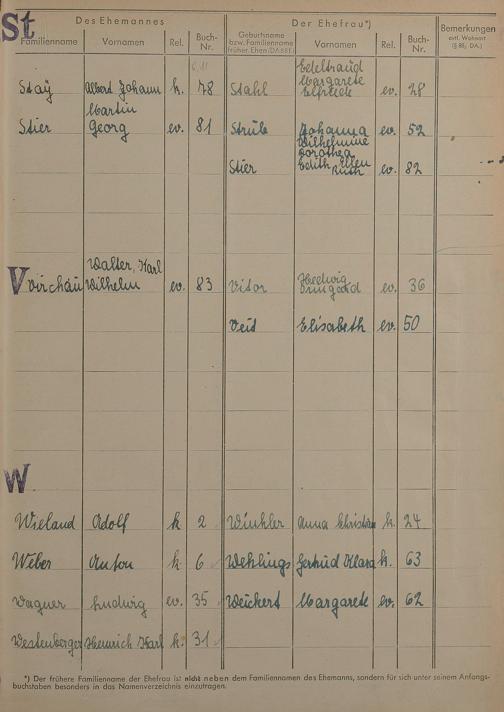 St
Des Ehemannes Der Ehefrau*) Bemerkungen
Familienname Vornamen Rel. Buch-Nr. Geburtsname Vornamen Rel. Buch-Nr. evtl. Wohnort
bzw. Familienname (§ 88, DA.)
früher. Ehen (DA §88)
Edeltraud
Margarete
Staÿ Albert Johann k. 78 Stahl Elfriede ev. 28
Martin
Stier Georg ev. 81 Strüb Johanna ev. 52
Wilhelmine
Dorothea
Stier Edith Ellen ev. 82
Ruth
V
Walter, Karl
Wilhelm ev. 83 Vitor Hedwig ev. 36
Irmgard
Veit Elisabeth ev. 50
W
Wieland Adolf k 2 Winkler Anna Christian k. 24
Weber Anton k. 6 Wehlings Gertrud Klara k. 63
Wagner Ludwig ev. 35 Weickert Margarete ev. 62
Westenberger Heinrich Karl k. 31
*) Der frühere Familienname der Ehefrau ist nicht neben dem Familiennamen des Ehemanns, sondern für sich unter seinem Anfangs-
buchstaben besonders in das Namenverzeichnis einzutragen.